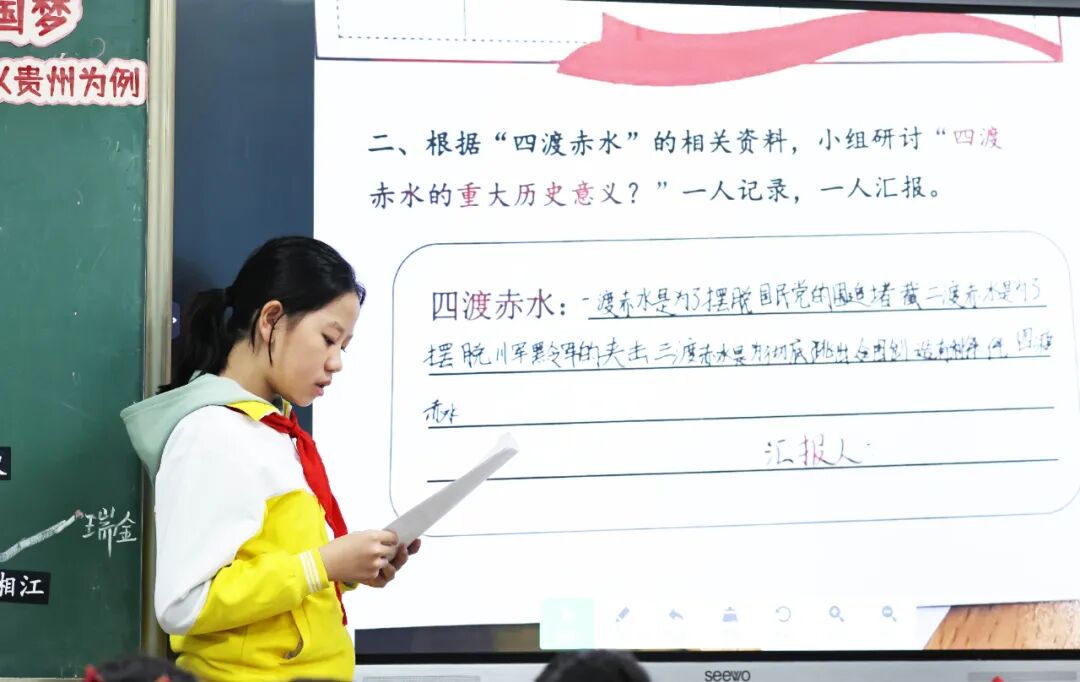 国梦
以贵州为例
瑞金
湘江
二、根据“四渡赤水”的相关资料，小组研讨“四渡
赤水的重大历史意义？”一人记录，一人汇报。
四渡赤水：一渡赤水是为了摆脱国民党的围追堵截二渡赤水是为了
摆脱川军黔军的夹击三渡赤水是为彻底跳出合围创造有利条件
赤水
汇报人：
seewo